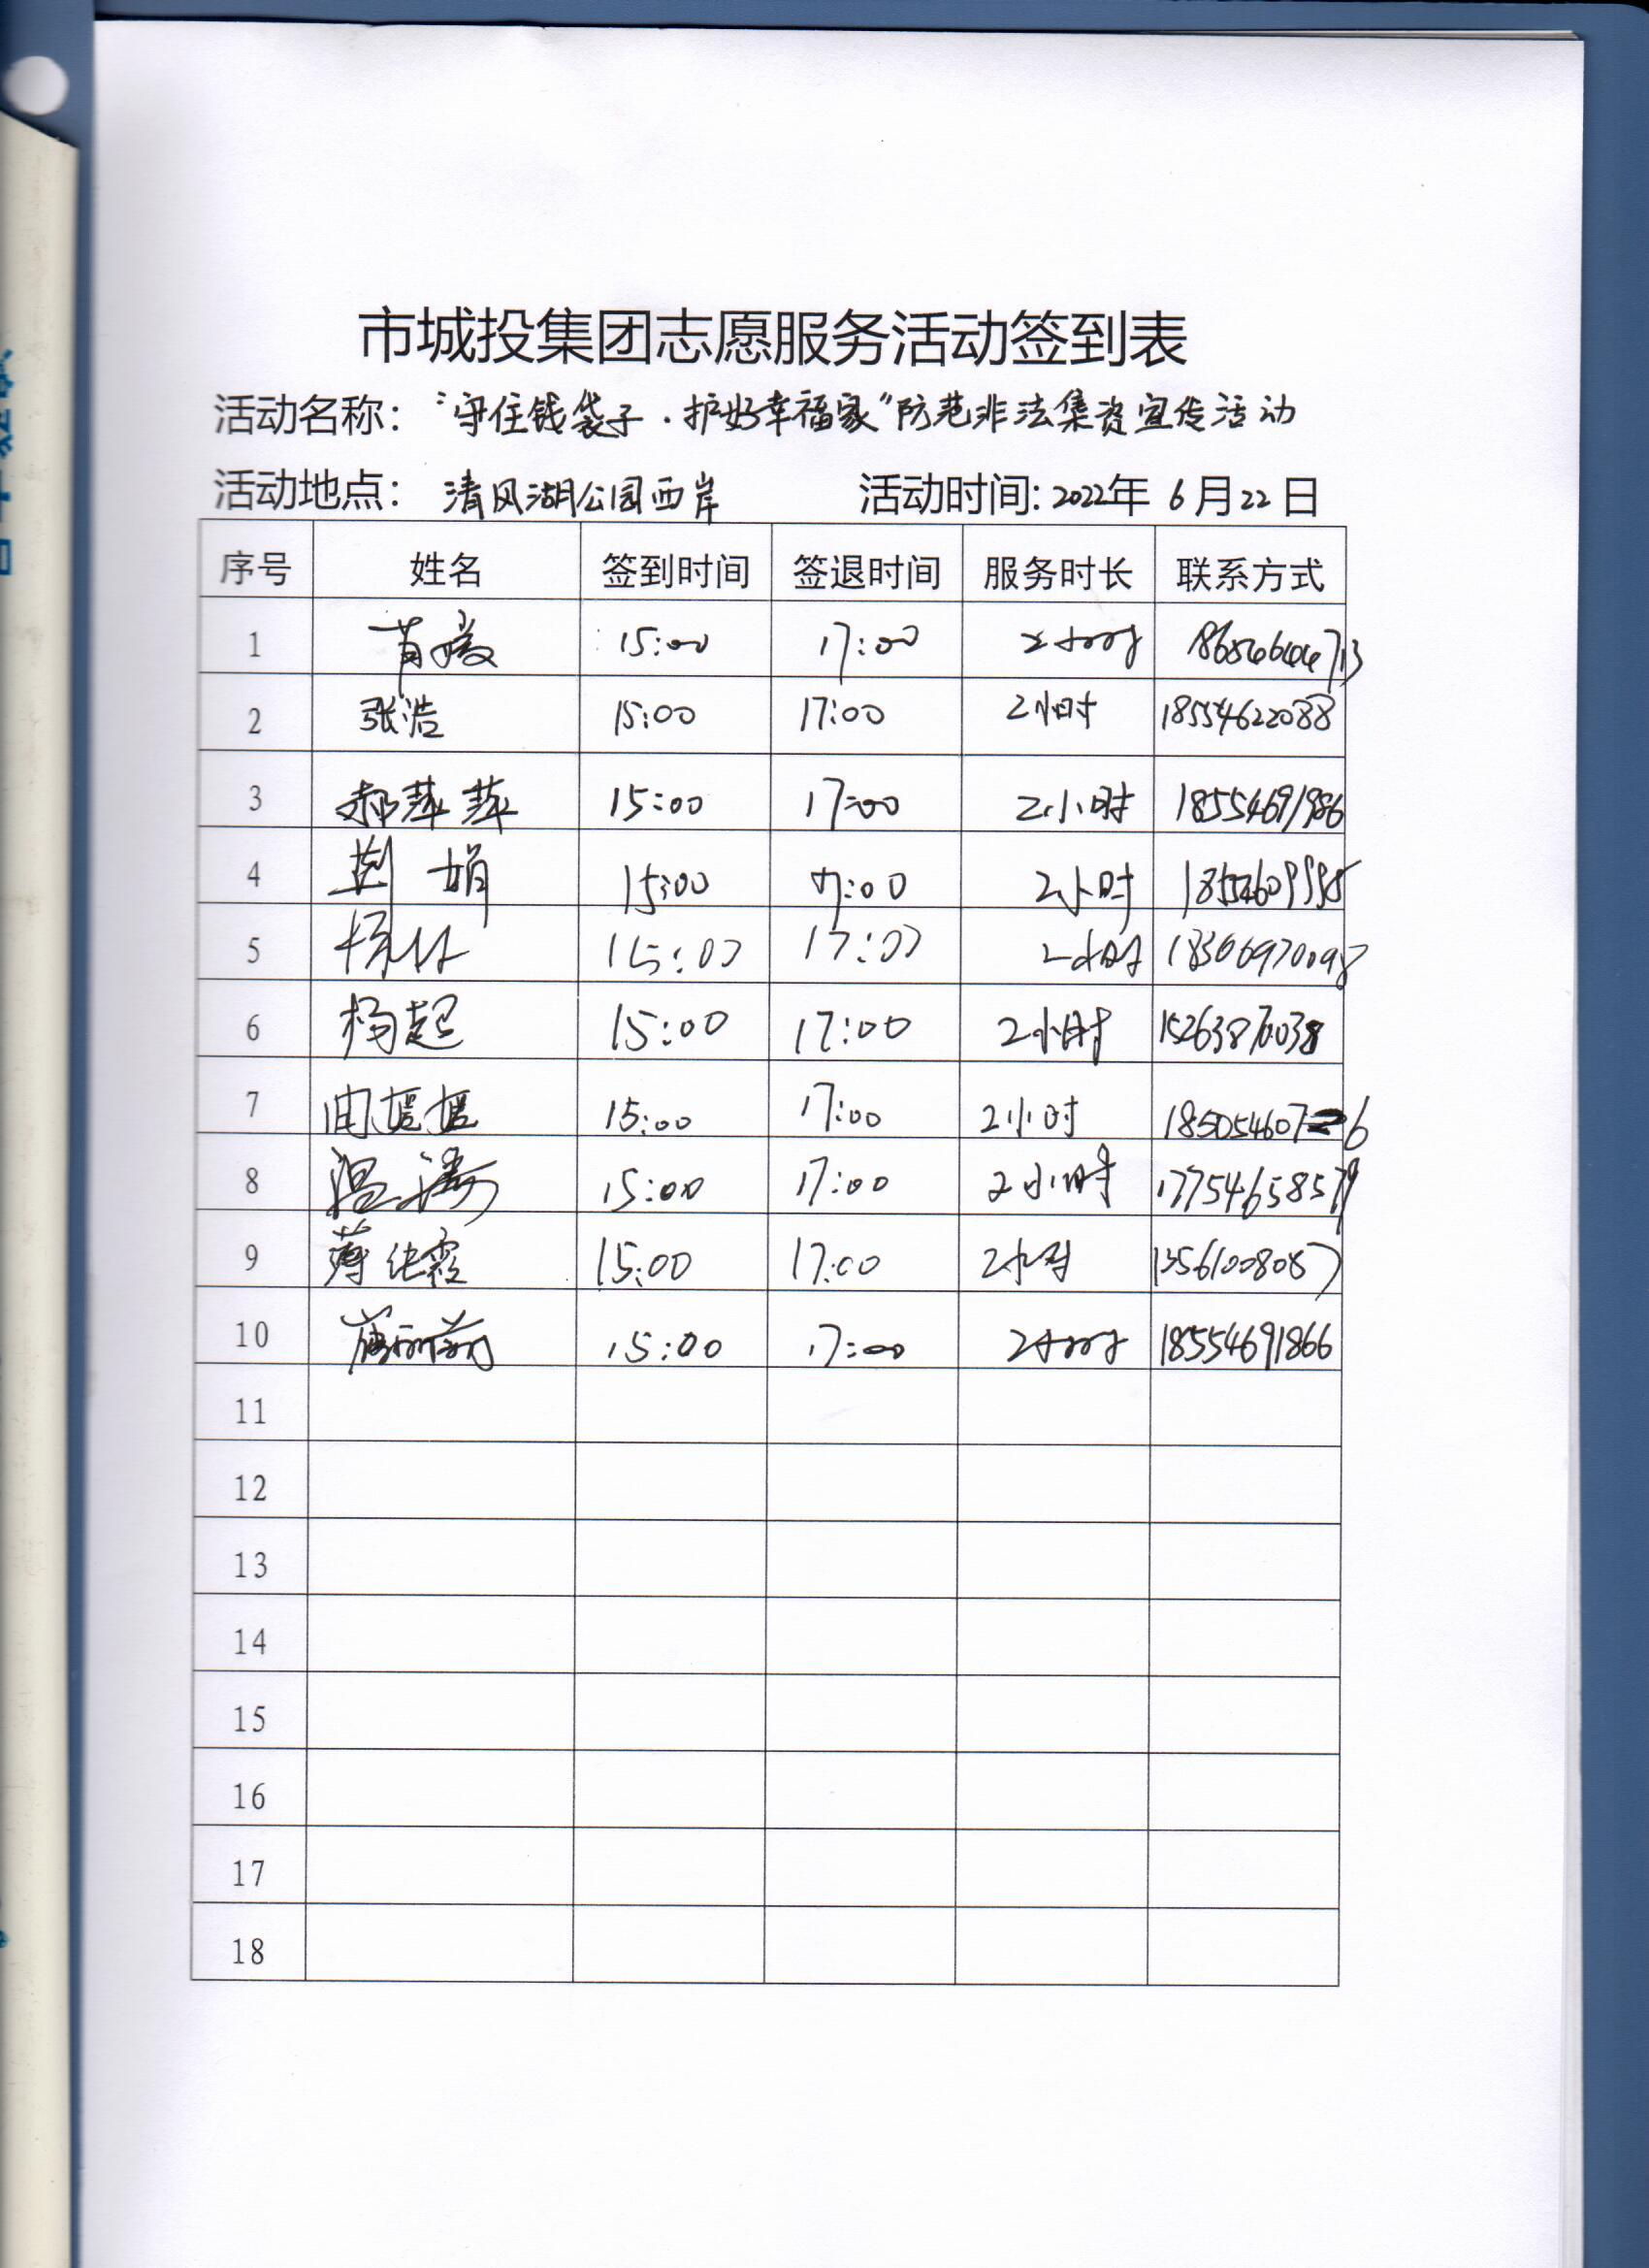 市城投集团志愿服务活动签到表
活动名称：“守住钱袋子·护好幸福家”防范非法集资宣传活动
活动地点：清风湖公园西岸 活动时间:2022年 6月22日
序号 姓名 签到时间 签退时间 服务时长 联系方式
1 15:00 17:00 2小时
2 张浩 15:00 17:00 2小时 18554622088
3 郝萍萍 15:00 17:00 2小时 18554691986
4 彭娟 15:00 17:00 2小时
5 15:00 17:00 2小时
6 杨超 15:00 17:00 2小时 15263870038
7 15:00 17:00 2小时
8 温涛 15:00 17:00 2小时 17754658579
9 薄纯霞 15:00 17:00 2小时 13561008087
10 15:00 17:00 2小时 18554691866
11
12
13
14
15
16
17
18